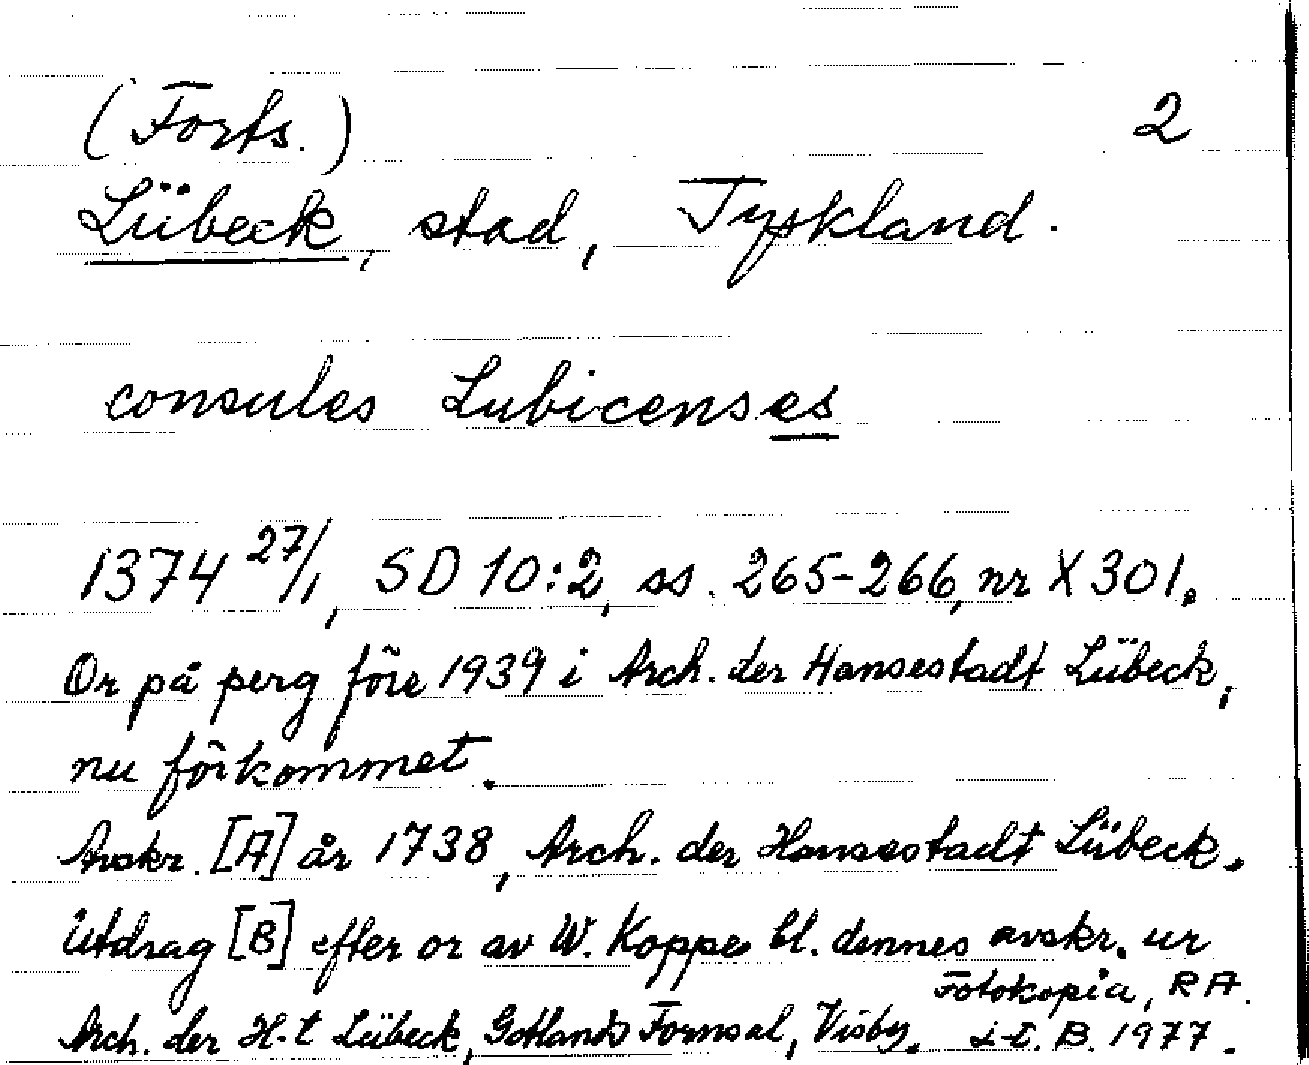 (Forts.) 2
Lübeck, stad, Tyskland.
consules Lubicenses
1374 27/1, SD 10:2, ss. 265-266, nr X 301.
Or på perg före 1939 i Arch. der Hansestadt Lübeck,
nu förkommet.
Avskr. [A] år 1738, Arch. der Hansestadt Lübeck.
Utdrag [B] efter or av W. Koppe bl. dennes avskr. ur
Arch. der H-t Lübeck, Gotlands Fornsal, Visby.
Fotokopia, RA.
L-E. B. 1977.